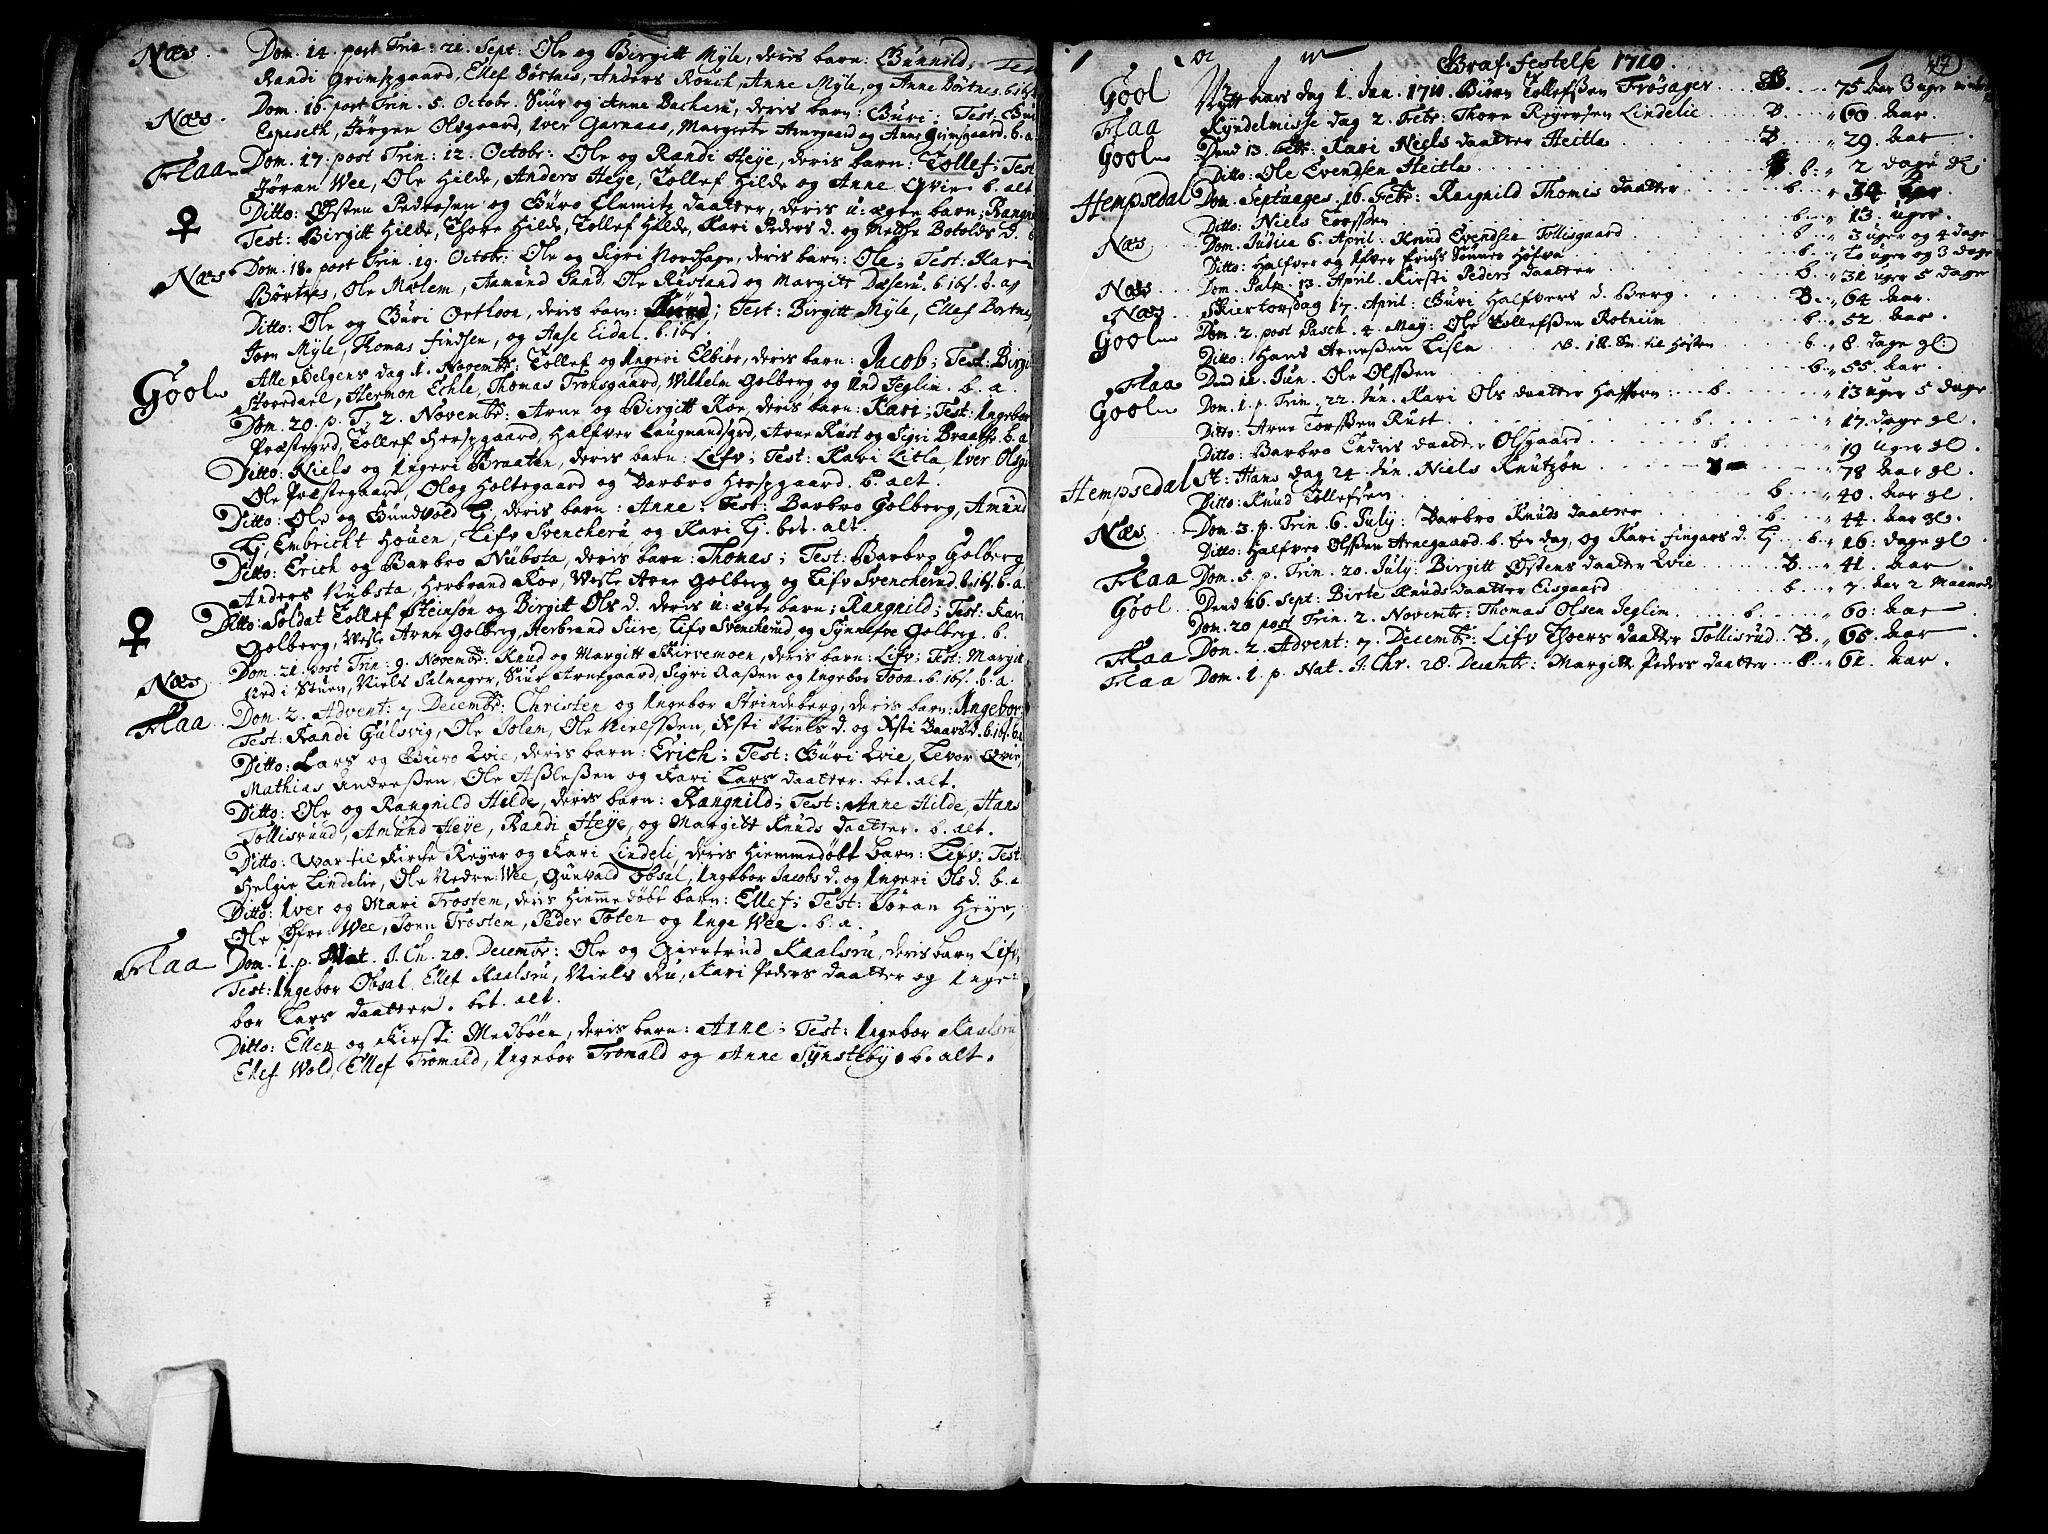 Næs. Dom. 14. post Trin: 21. Sept: Ole og Birgitt Myle, deris barn: Gunnild; Test
Randi Grimsgaard, Ellef Børtnes, Anders Rouch, Anne Myle, og Anne Børtnes.
Næs. Dom. 16. post Trin. 5. Octobr. Siur og Anne Bacheru, deris barn: Guri; Test: Guri
Espeseth, Jørgen Olsgaard, Iver Garnaas, Margrete Arnegaard og Anne Grimsgaard. b. a.
Flaa Dom. 17. post Trin: 12. Octobr: Ole og Randi Heye, deris barn: Tollef; Test
Jøran Wee, Ole Hilde, Anders Heye, Tollef Hilde og Anne Qvie b. alt
♀ Ditto: Østen Pedersen og Guro Clemitz daatter, deris u: ægte barn; Rangni
Test: Birgitt Hilde, Thore Hilde, Tollef Hilde, Kari Peders d. og Botolds d.
Næs Dom. 18. post Trin. 19. Octobr: Ole og Sigri Nordhage, deris barn: Ole; Test: Kari
Børtnes, Ole Molem, Aamund Sand, Ole Rustand og Margitt Daseru.
Ditto: Ole og Guri Orthoon, deris barn: ; Test: Birgitt Myle, Ellef Bortnes,
Joen Myle, Thomas findsen, og Aase Eidal.
Gool Alle Helgens dag 1. Novembr: Tollef og Ingeri Elbiør, deris barn: Jacob; Test: Birgi
Storedael, Hermon Echle, Thomas Tronsgaard, Wilhelm Golberg, og Und Jeglim. b. a.
Dom. 20. p. T. 2. Novembr: Arne og Birgitt Roe, deris barn: Kari; Test: Ingebor
Præstegrd, Tollef Hersgaard, Halfver Laugmandsgrd, Arne Rust og Sigri Braathe. b. a
Ditto: Niels og Ingeri Braaten, deris barn: Lifv; Test: Kari Litla, Iver Olsg
Ole Præstegaard, Olag Holtegaard og Barbro Hersgaard. b. alt.
Ditto: Ole og Gundvold Tj, deris barn: Anne. Test: Barbro Golberg, Amund
Tj, Embricht Houen, Lifv Svencheru, og Kari Tj. bet. alt.
Ditto: Erich og Barbro Nubsta, deris barn: Thomas; Test: Barbro Golberg,
Anders Nubsta, Herbrand Roe, Wesle Arne Golberg og Lifv Svencherud. b. a.
♀ Ditto: Soldat Tollef Steinsøn og Birgitt Ols d. deris u: ægte barn; Rangnild; Test: Kari
Golberg, Wesle Arne Golberg, Herbrand Siire, Lifv Svencherud, og Synnefve Golberg. b.
Næs Dom. 21. post Trin: 9. Novembr: Knud og Margitt Skirvemoen, deris barn: Lifv; Test: Margit
Ned i Stuen, Niels Salnager, Siur Arnegaard, Sigri Raßen og Ingebor Toon. b. a.
Flaa Dom. 2. Advent: 7. Decembr: Christen og Ingebor Strindeberg, deris barn: Ingebor;
Test: Randi Gulsvig, Ole Solem, Ole Nielsßen, Kisti Niels d. og Kisti Baars d.
Ditto: Lars og Guro Qvie, deris barn: Erich; Test: Guri Qvie, Levor Qvie,
Mathias Andreßen, Ole Aßleßen og Kari Lars daatter. bet. alt.
Ditto: Ole og Rangnild Hilde, deris barn: Rangnild; Test: Anne Hilde, Hans
Tollisruud, Amund Heye, Randi Heye, og Margitt Knuds daatter. b. alt.
Ditto: War til Kirche Reyer og Kari Lindeli, deris hiemmedøbt barn: Lifv; Test
Helgie Lindelie, Ole Nedre: Wee, Gunvald Obsal, Ingebor Jacobs d. og Ingeri Ols d. b. a
Ditto: Iver og Mari Trosten, deris hiemmedøbt barn: Ellef; Test: Jøran Heye,
Ole Øfre: Wee, Jonn Trosten, Peder Toten og Inge Wee. b. a.
Flaa Dom. 1. p. Nat. J. Ch. 28. Decembr: Ole og Giertrud Kaalsru, deris barn Lifv,
Test: Ingebor Obsal, Ellef Kaalsru, Niels Ru, Kari Peders daatter og Inge-
bor Lars daatter. bet. alt.
Ditto: Ellen og Kirsti Medbøen, deris barn: Arne; Test: Ingebor Kaalsru
Ellef Wold, Ellef Tromald, Ingebor Tromald og Anne Synsteby. b. alt.
Graf-festelse 1710. 17
Gool Nytt aars dag 1. Jan. 1710. Biørn Tollefsßen Frøsager B. 75 aar 3 uger
Flaa Kyndelmisse dag 2. Febr: Thore Reyersen Lindelie B. 60 aar.
Gool Dend 13. Febr: Kari Niels daatter Heitla B 29. aar.
Ditto: Ole Evendsen Heitla b. 2 dage gl
Hempsedal Dom. Septuages. 16. Febr: Rangnild Thomis daatter b. 34
Ditto: Niels Torsßen b. 13. uger.
Næs Dom. Judica 6. April: Knud Evendsen Tollisgaard b. 3 uger og 4 dage
Ditto: Halfver og Ifver Erichs Sønner Hofva b. To uger og 3 dage
Næs Dom. Palm. 13. April. Kirsti Peders daatter b. 31 uger 5 dage
Næs Skiertorsdag 17. April. Guri Halfvers d. Berg B. 64 aar.
Gool Dom. 2. post Pasch. 4. May: Ole Tollefsßen Rotneim b. 52 aar.
Ditto: Hans Arnesßen Lisle b. 8 dage gl:
Flaa Dend 11. Jun. Ole Olsßen b. 55 aar.
Gool Dom. 1. p. Trin. 22. Jun. Kari Ols daatter b. 13 uger 5 dage
Ditto: Arne Torsßen Rust b. 17. dage gl
Ditto: Barbro Endris daatter Olsgaard b. 19 uger gl
Hempsedal St: Hans dag 24. Jun. Niels Knutzøn B 78 aar gl.
Ditto: Knud Tollefsen b. 40. aar gl.
Næs Dom. 3. p. Trin. 6. July: Barbro Knuds daatter b. 44. aar gl.
Ditto: Halfver Olsßen Arnegaard b. Een dag, og Kari Fingars d. Tj b. 16. dage gl.
Flaa Dom. 5. p. Trin. 20. July: Birgitt Østens daatter Qvie B. 41 aar.
Gool Dend 16. Sept: Birte Knuds daatter Eisgaard b. 7 aar 2 Maaneder
Dom. 20 post Trin. 2. Novembr: Thomas Olsen Jeglim b. 60. aar
Flaa Dom. 2. Advent: 7. Decembr: Lifv Thoers daatter Tollisrud B. 66. aar
Flaa Dom. 1. p. Nat. J. Chr. 28. Decembr: Margitt Peders daatter 61. aar.